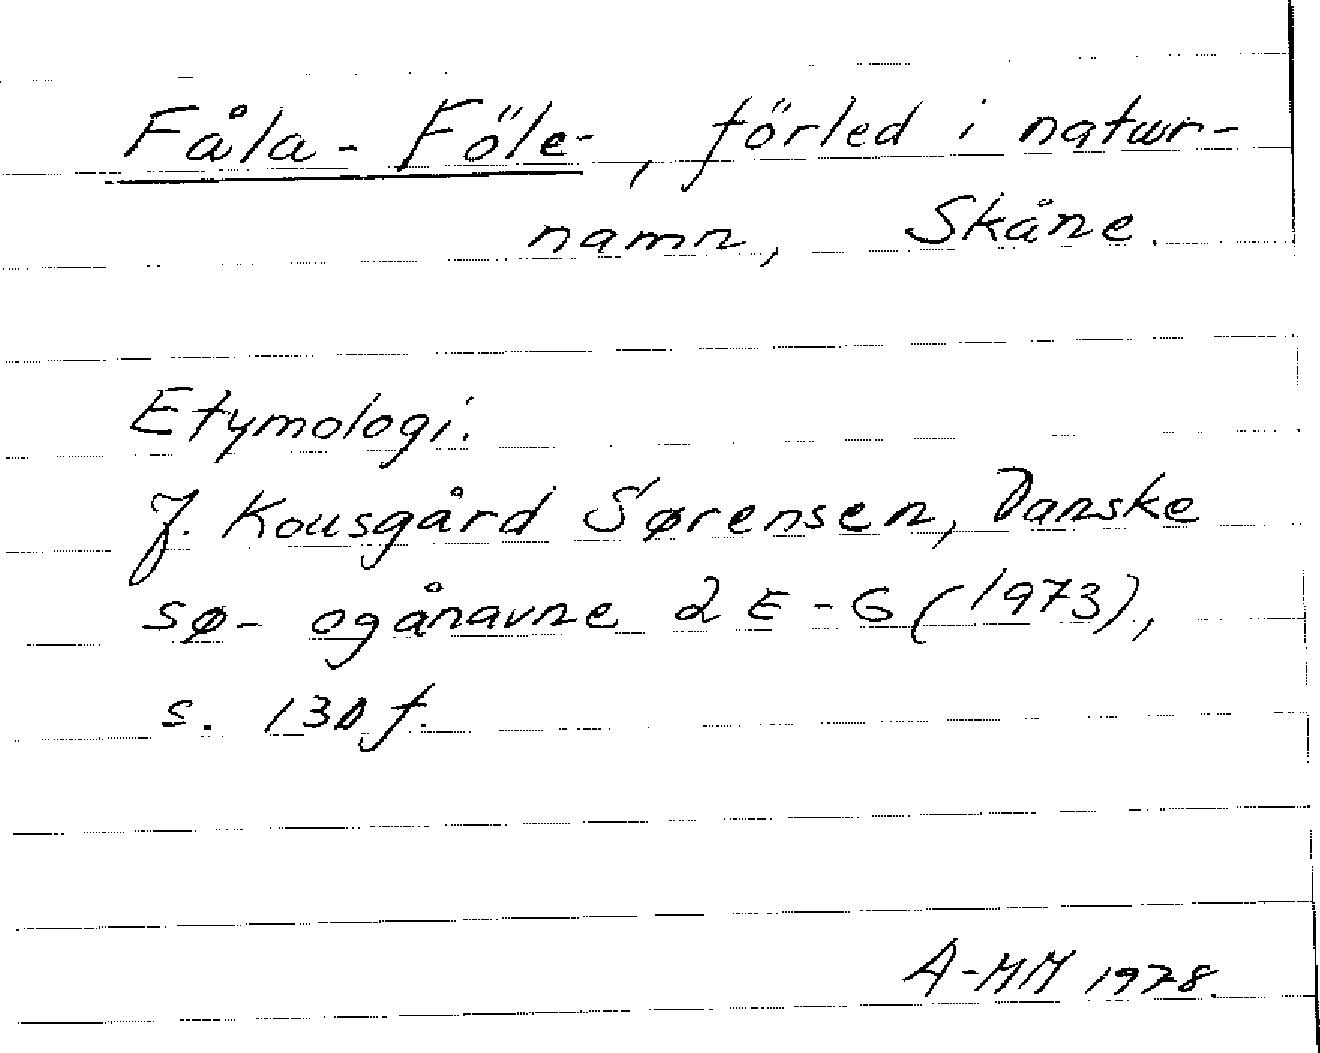 Fåla- Föle-, förled i natur-
namn, Skåne.
Etymologi:
J. Kousgård Sørensen, Danske
sø- og ånavne 2 E-G (1973),
s. 130 f.
A-MM 1978.